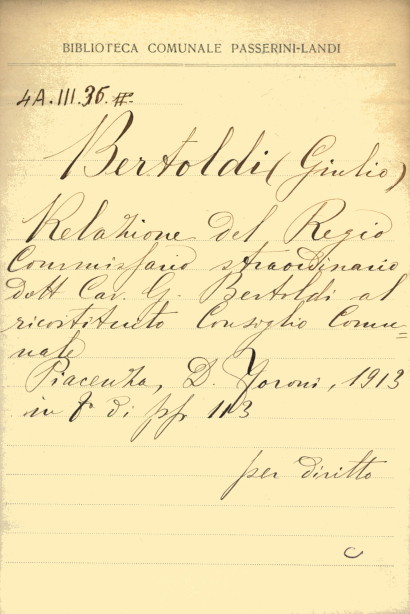 BIBLIOTECA COMUNALE PASSERINI-LANDI
4A.III.36.
Bertoldi (Giulio)
Relazione del Regio
Commissario straordinario
Dott Cav. G. Bertoldi al
ricostituito Consiglio Comu=
nale
Piacenza, D. Foroni, 1913
in 8° di pp 113
per diritto
C